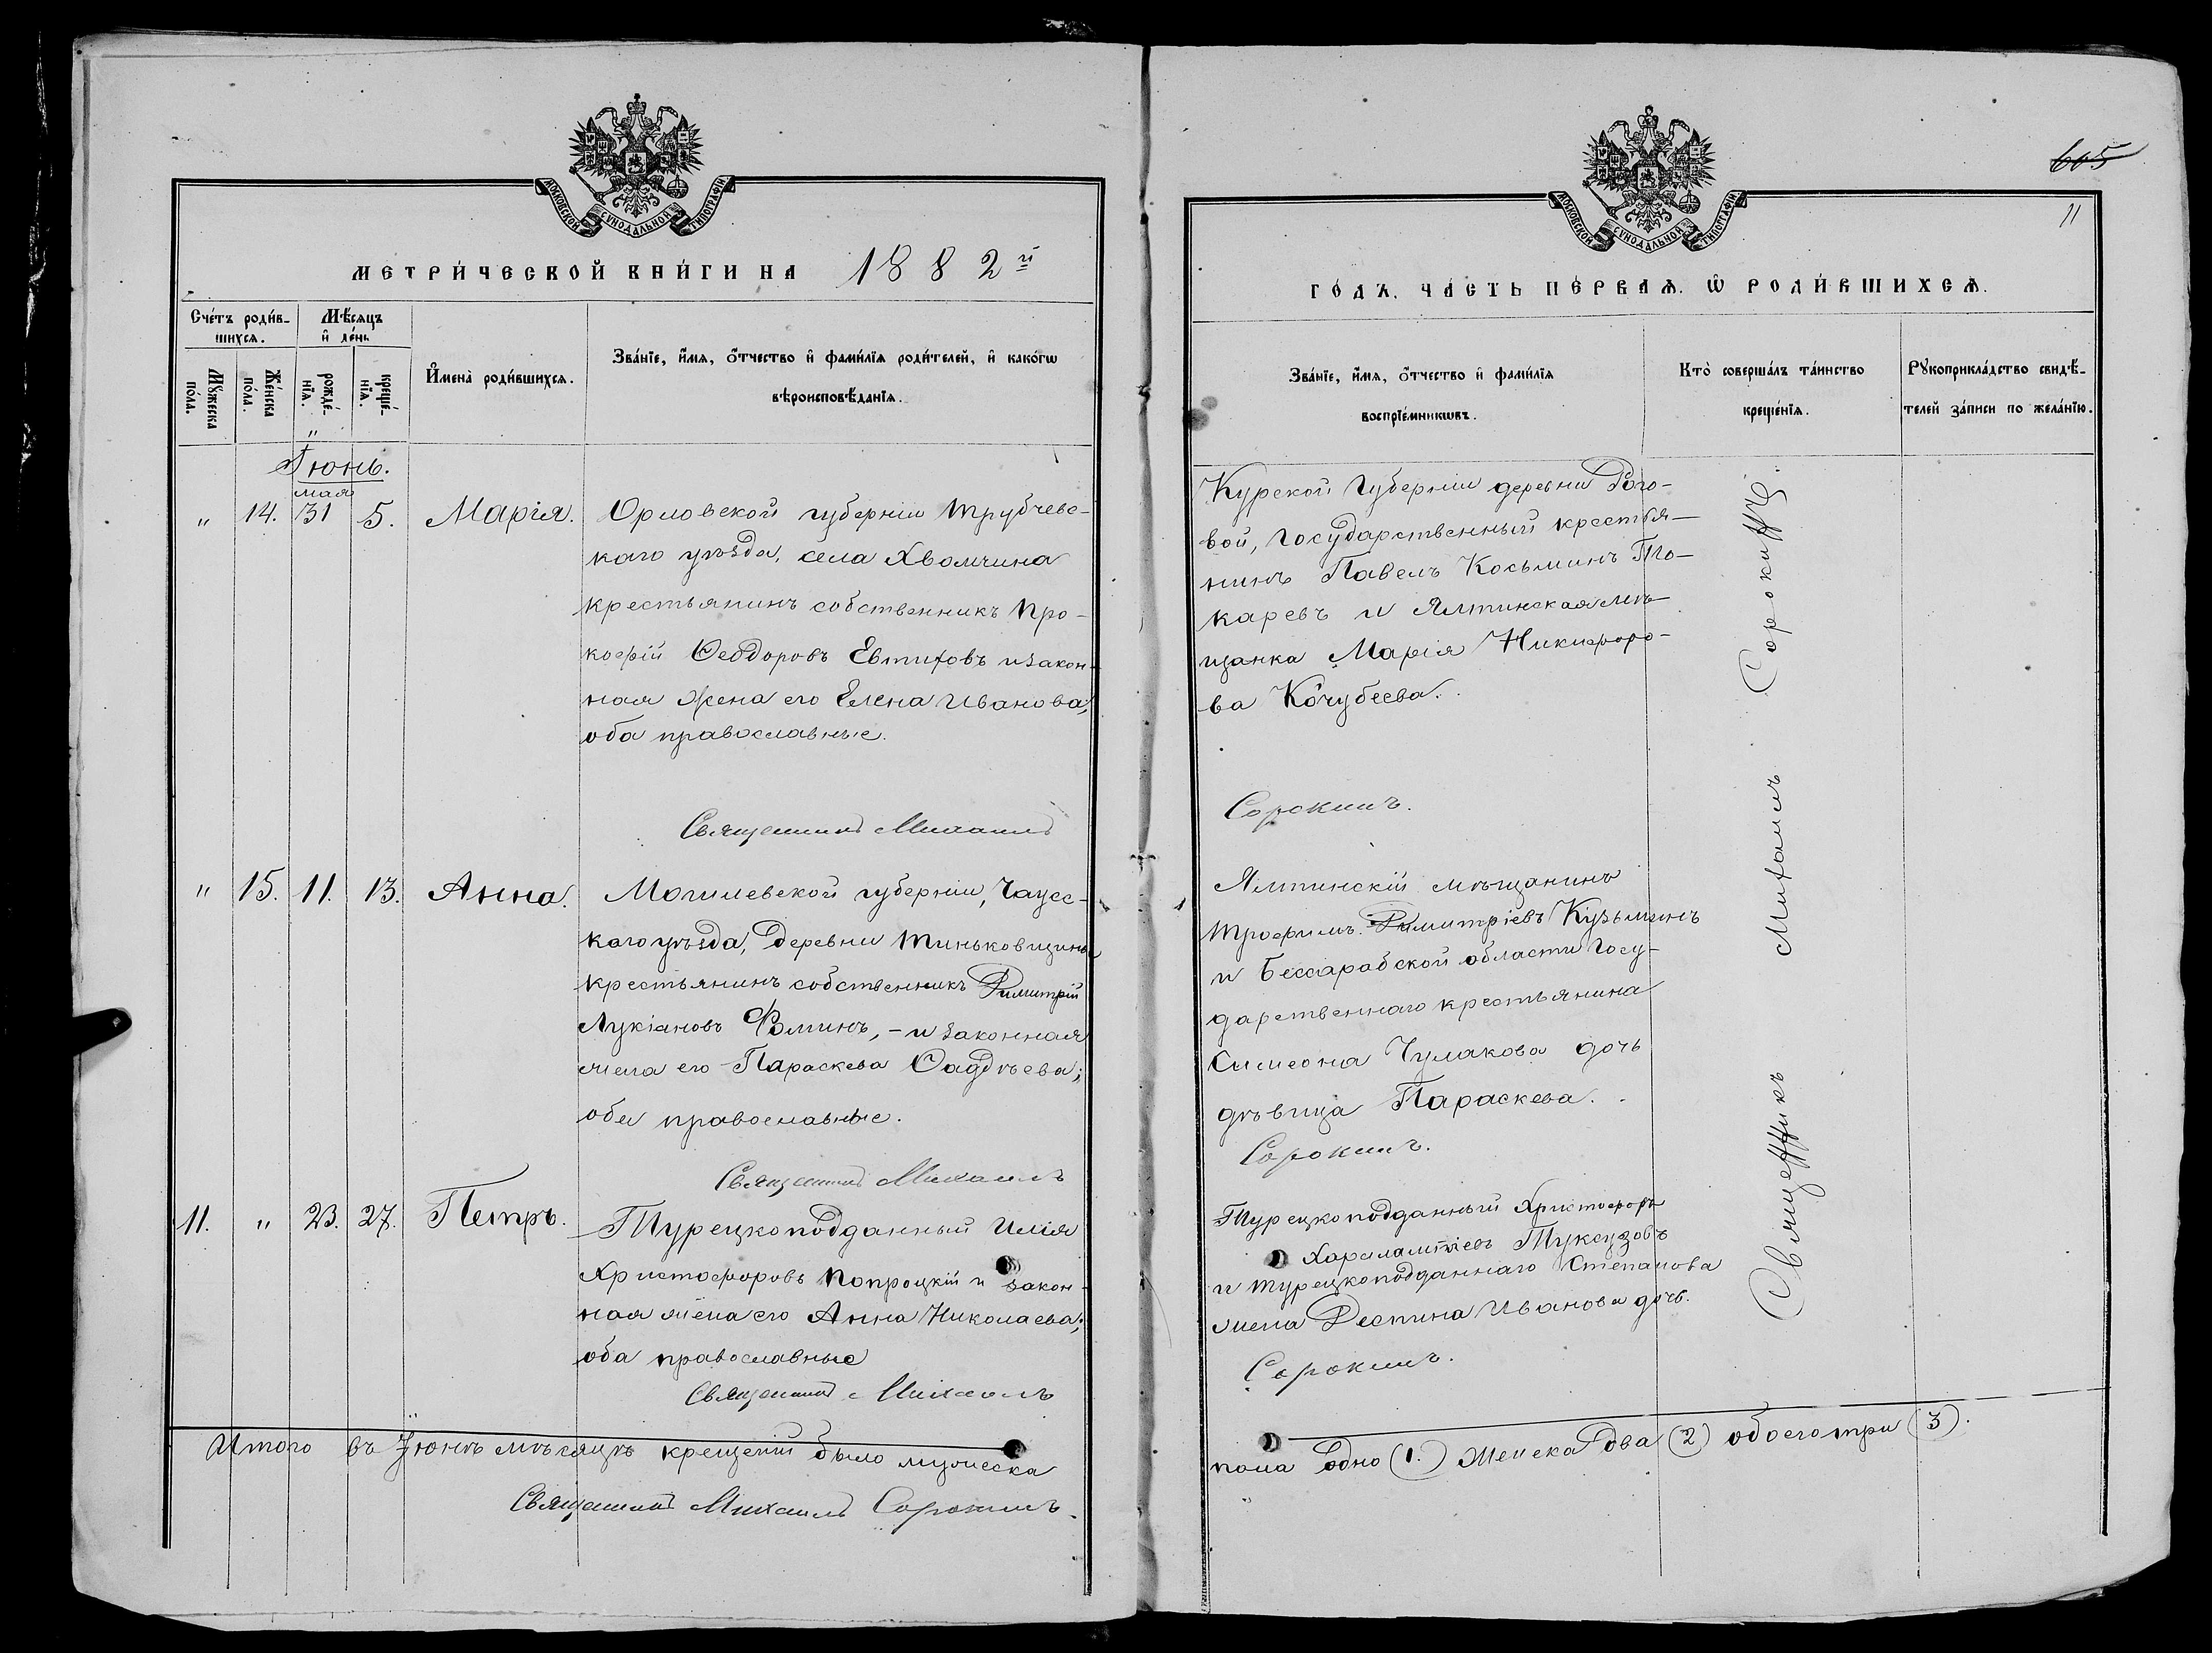 МОСКОВСКОЙ СѴНОДАЛЬНОЙ ТИПОГРАФІИ
МЕТРИ́ЧЕСКОЙ КНИ́ГИ НА 1882й
Сче́тъ роди́в-
шихся.
Мѣ́сяцъ
и҆ де́нь
Мꙋ́жеска
по́ла.
Же́нска
по́ла.
рожде́-
нїѧ.
креще́-
нїѧ.
И҆мена̀ роди́вшихся.
Зва́нїе, и҆́мѧ, ѻ҆́тчество и҆ фами́лїѧ роди́телей, и҆ како́гѡ
вѣроисповѣ́данїѧ.
Іюнь.
мая
" 14. 31 5. Марія.
Орловской губерніи Трубчевс-
каго уѣзда, села Хвомчина
крестьянинъ собственникъ Про-
кофій Ѳеодоровъ Евтиховъ и закон-
ная жена его Елена Иванова,
оба православные.
Священникъ Михаилъ
" 15. 11. 13. Анна.
Могилевской губерніи, Чаусс-
каго уѣзда, деревни Тиньковщины
крестьянинъ собственникъ Димитрій
Лукіановъ Фоминъ, - и законная
жена его Параскева Ѳаддѣева;
оба православные.
Священникъ Михаилъ
11. " 23. 27. Петръ.
Турецкоподданный Илія
Христофоровъ Попроцкій и закон-
ная жена его Анна Николаева;
оба православные
Священникъ Михаилъ
Итого въ Іюнѣ мѣсяцѣ крещеній было мужеска
Священникъ Михаилъ Сорокинъ.
605
11
МОСКОВСКОЙ СѴНОДАЛЬНОЙ ТИПОГРАФІИ
ГО́ДЪ, ЧА́СТЬ ПЕ́РВАѦ, Ѽ РОДИ́ВШИХСѦ.
Зва́нїе, и҆́мѧ, ѻ҆́тчество и҆ фами́лїѧ
воспрїе́мникѡвъ.
Кто̀ соверша́лъ та́инство
креще́нїѧ.
Рꙋкоприкла́дство свидѣ́-
телей за́писи по жела́нїю.
Курской Губерніи деревни Рого-
вой, государственный крестья-
нинъ Павелъ Косьминъ То-
каревъ и Ялтинская мѣ-
щанка Марія Никифоро-
ва Кочубеева.
Сорокинъ.
Ялтинскій мѣщанинъ
Трофимъ Димитріевъ Кузьминъ
и Бессарабской области Госу-
дарственнаго крестьянина
Симеона Чулакова дочь
дѣвица Параскева.
Сорокинъ.
Турецкоподданный Христофоръ
Харалампіевъ Туксузовъ
и турецкоподданнаго Степанова
жена Деспина Иванова дочь.
Сорокинъ.
пола одно (1.) женска два (2) обоего три (3).
Священникъ Михаилъ Сорокинъ.